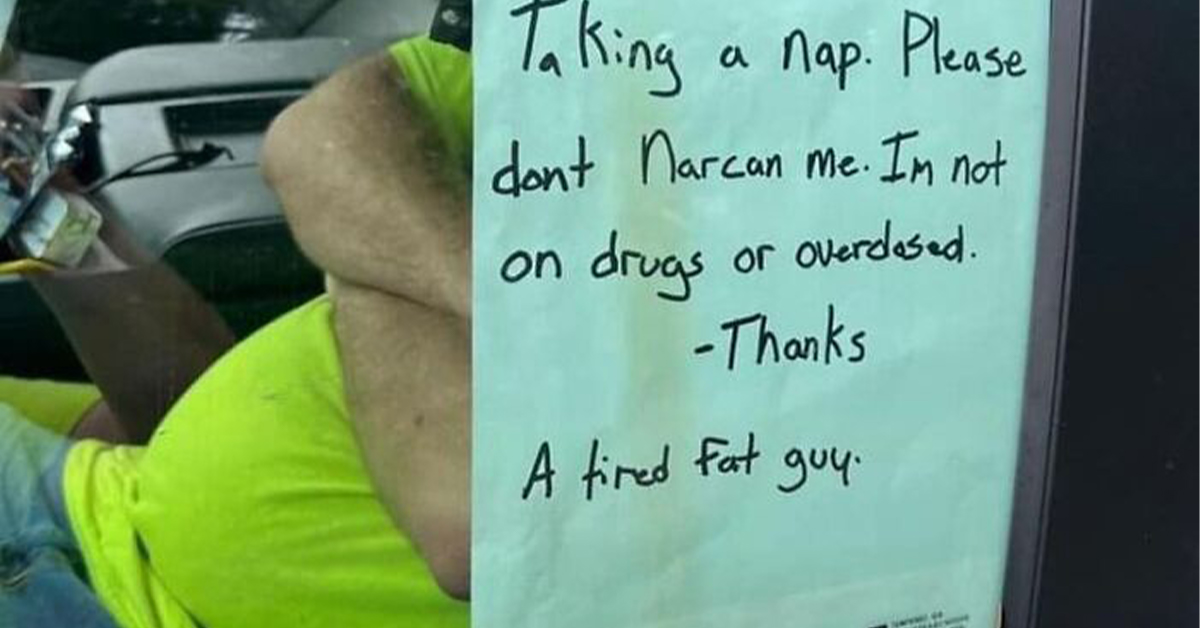 Taking a nap. Please
dont Narcan me. Im not
on drugs or overdosed.
-Thanks
A tired fat guy.